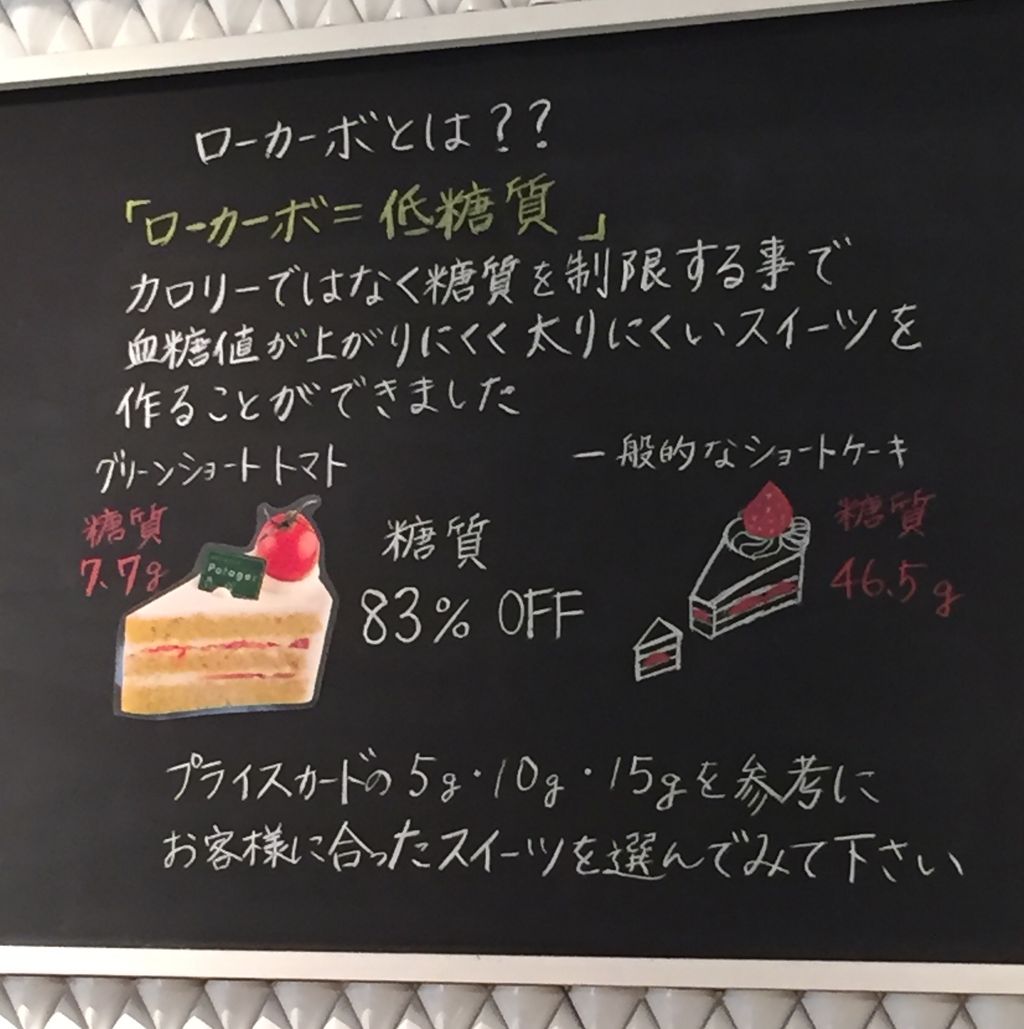 ローカーボとは??
「ローカーボ=低糖質」
カロリーではなく糖質を制限する事で
血糖値が上がりにくく太りにくいスイーツを
作ることができました
グリーンショートトマト
一般的なショートケーキ
糖質
7.7g
Potager
糖質
83% OFF
糖質
46.5g
プライスカードの5g・10g・15gを参考に
お客様に合ったスイーツを選んでみて下さい